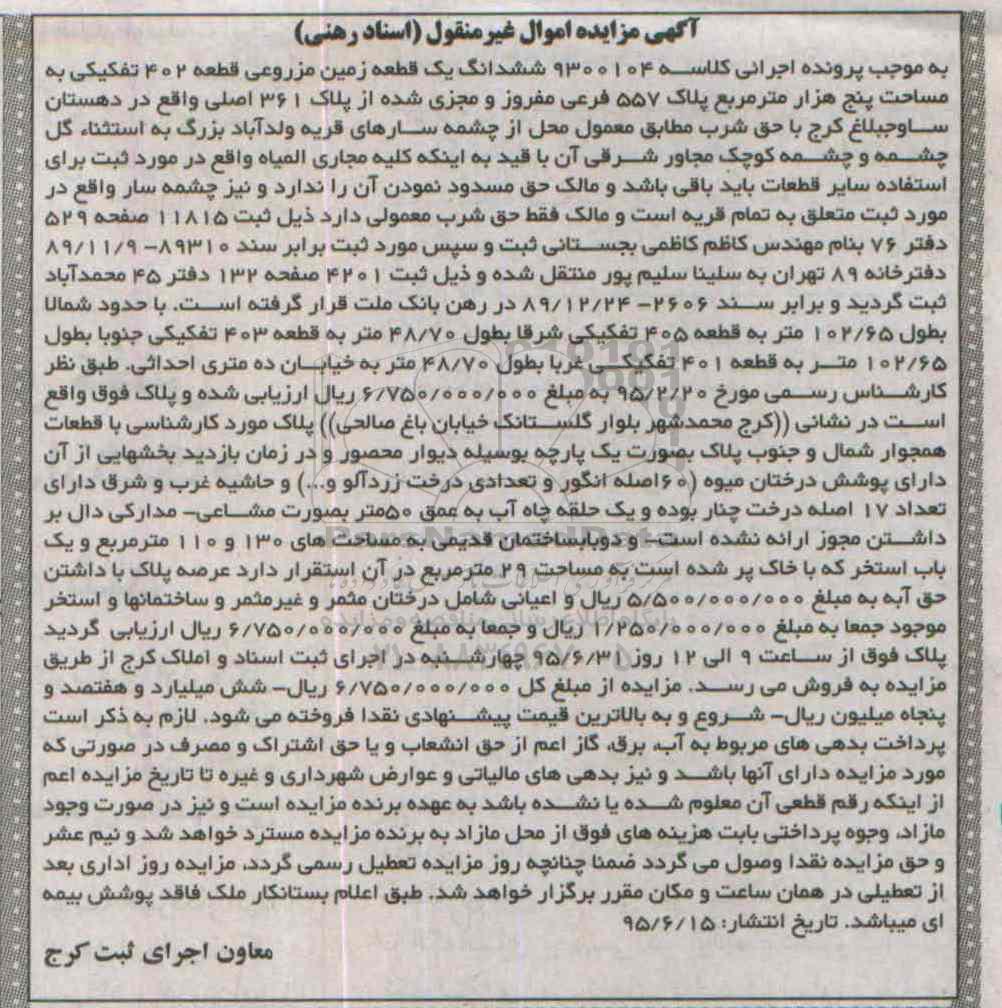 آگهی مزایده اموال غیرمنقول (اسناد رهنی)
به موجب پرونده اجرائی کلاسه ۹۳۰۰۱۰۴ ششدانگ یک قطعه زمین مزروعی قطعه ۴۰۲ تفکیکی به
مساحت پنج هزار مترمربع پلاک ۵۵۷ فرعی مفروز و مجزی شده از پلاک ۳۶۱ اصلی واقع در دهستان
ساوجبلاغ کرج با حق شرب مطابق معمول محل از چشمه سارهای قریه ولدآباد بزرگ به استثناء گل
چشمه و چشمه کوچک مجاور شرقی آن با قید به اینکه کلیه مجاری المیاه واقع در مورد ثبت برای
استفاده سایر قطعات باید باقی باشد و مالک حق مسدود نمودن آن را ندارد و نیز چشمه سار واقع در
مورد ثبت متعلق به تمام قریه است و مالک فقط حق شرب معمولی دارد ذیل ثبت ۱۱۸۱۵ صفحه ۵۲۹
دفتر ۷۶ بنام مهندس کاظم کاظمی بجستانی ثبت و سپس مورد ثبت برابر سند ۸۹۳۱۰- ۸۹/۱۱/۹
دفترخانه ۸۹ تهران به سلینا سلیم پور منتقل شده و ذیل ثبت ۴۲۰۱ صفحه ۱۳۲ دفتر ۴۵ محمدآباد
ثبت گردید و برابر سند ۲۶۰۶- ۸۹/۱۲/۲۴ در رهن بانک ملت قرار گرفته است. با حدود شمالا
بطول ۱۰۲/۶۵ متر به قطعه ۴۰۵ تفکیکی شرقا بطول ۴۸/۷۰ متر به قطعه ۴۰۳ تفکیکی جنوبا بطول
۱۰۲/۶۵ متر به قطعه ۴۰۱ تفکیکی غربا بطول ۴۸/۷۰ متر به خیابان ده متری احداثی. طبق نظر
کارشناس رسمی مورخ ۹۵/۲/۲۰ به مبلغ ۶/۷۵۰/۰۰۰/۰۰۰ ریال ارزیابی شده و پلاک فوق واقع
است در نشانی ((کرج محمدشهر بلوار گلستانک خیابان باغ صالحی)) پلاک مورد کارشناسی با قطعات
همجوار شمال و جنوب پلاک بصورت یک پارچه بوسیله دیوار محصور و در زمان بازدید بخشهایی از آن
دارای پوشش درختان میوه (۶۰اصله انگور و تعدادی درخت زردآلو و...) و حاشیه غرب و شرق دارای
تعداد ۱۷ اصله درخت چنار بوده و یک حلقه چاه آب به عمق ۵۰متر بصورت مشاعی- مدارکی دال بر
داشتن مجوز ارائه نشده است- و دوبابساختمان قدیمی به مساحت های ۱۳۰ و ۱۱۰ مترمربع و یک
باب استخر که با خاک پر شده است به مساحت ۲۹ مترمربع در آن استقرار دارد عرصه پلاک با داشتن
حق آبه به مبلغ ۵/۵۰۰/۰۰۰/۰۰۰ ریال و اعیانی شامل درختان مثمر و غیرمثمر و ساختمانها و استخر
موجود جمعا به مبلغ ۱/۲۵۰/۰۰۰/۰۰۰ ریال و جمعا به مبلغ ۶/۷۵۰/۰۰۰/۰۰۰ ریال ارزیابی گردید
پلاک فوق از ساعت ۹ الی ۱۲ روز ۹۵/۶/۳۱ چهارشنبه در اجرای ثبت اسناد و املاک کرج از طریق
مزایده به فروش می رسد. مزایده از مبلغ کل ۶/۷۵۰/۰۰۰/۰۰۰ ریال- شش میلیارد و هفتصد و
پنجاه میلیون ریال- شروع و به بالاترین قیمت پیشنهادی نقدا فروخته می شود. لازم به ذکر است
پرداخت بدهی های مربوط به آب، برق، گاز اعم از حق انشعاب و یا حق اشتراک و مصرف در صورتی که
مورد مزایده دارای آنها باشد و نیز بدهی های مالیاتی و عوارض شهرداری و غیره تا تاریخ مزایده اعم
از اینکه رقم قطعی آن معلوم شده یا نشده باشد به عهده برنده مزایده است و نیز در صورت وجود
مازاد، وجوه پرداختی بابت هزینه های فوق از محل مازاد به برنده مزایده مسترد خواهد شد و نیم عشر
و حق مزایده نقدا وصول می گردد ضمنا چنانچه روز مزایده تعطیل رسمی گردد، مزایده روز اداری بعد
از تعطیلی در همان ساعت و مکان مقرر برگزار خواهد شد. طبق اعلام بستانکار ملک فاقد پوشش بیمه
ای میباشد. تاریخ انتشار: ۹۵/۶/۱۵
معاون اجرای ثبت کرج